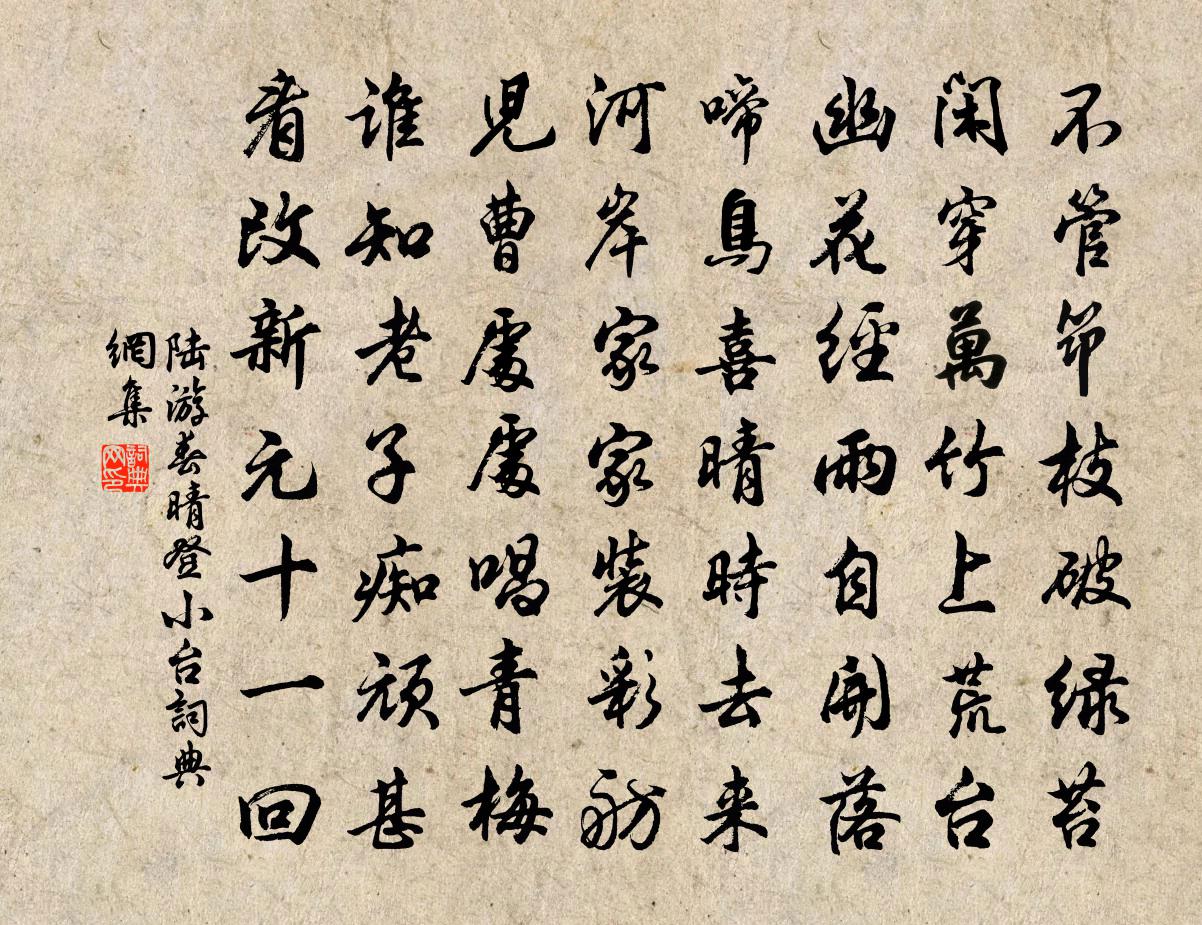 不管笻枝破緑苔
閑穿萬竹上荒台
幽花經雨自開落
啼鳥喜晴時去来
河岸家家裝彩舫
兒曹處處唱青梅
誰知老子痴頑甚
看改新元十一回
陆游春晴登小台詞典
網集
詞典
网印